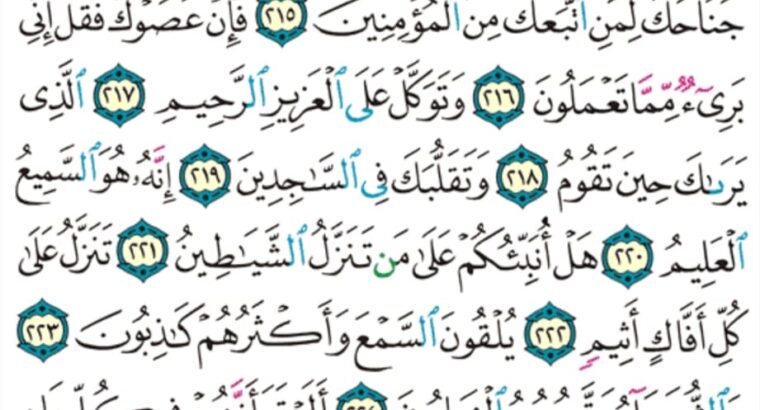 جَنَاحَكَ لِمَنِ ٱتَّبَعَكَ مِنَ ٱلْمُؤْمِنِينَ ٢١٥ فَإِنْ عَصَوْكَ فَقُلْ إِنِّى
بَرِىٓءٌ مِّمَّا تَعْمَلُونَ ٢١٦ وَتَوَكَّلْ عَلَى ٱلْعَزِيزِ ٱلرَّحِيمِ ٢١٧ ٱلَّذِى
يَرَىٰكَ حِينَ تَقُومُ ٢١٨ وَتَقَلُّبَكَ فِى ٱلسَّـٰجِدِينَ ٢١٩ إِنَّهُۥ هُوَ ٱلسَّمِيعُ
ٱلْعَلِيمُ ٢٢٠ هَلْ أُنَبِّئُكُمْ عَلَىٰ مَن تَنَزَّلُ ٱلشَّيَـٰطِينُ ٢٢١ تَنَزَّلُ عَلَىٰ
كُلِّ أَفَّاكٍ أَثِيمٍ ٢٢٢ يُلْقُونَ ٱلسَّمْعَ وَأَكْثَرُهُمْ كَـٰذِبُونَ ٢٢٣